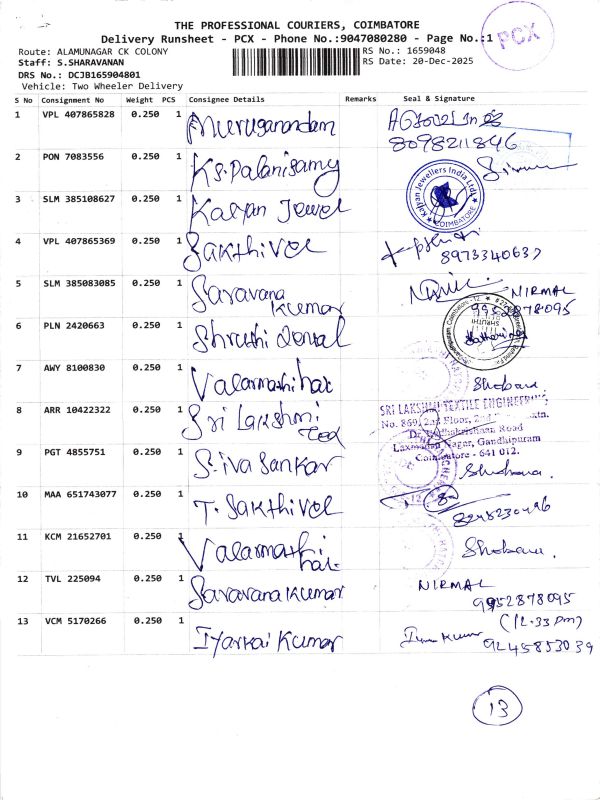 THE PROFESSIONAL COURIERS, COIMBATORE
Delivery Runsheet - PCX - Phone No.:9047080280 - Page No.:1
PCX
Route: ALAMUNAGAR CK COLONY
RS No.: 1659048
Staff: S.SHARAVANAN
RS Date: 20-Dec-2025
DRS No.: DCJB165904801
Vehicle: Two Wheeler Delivery
S No Consignment No Weight PCS Consignee Details Remarks Seal & Signature
1 VPL 407865828 0.250 1 Muruganandam
8098211846
2 PON 7083556 0.250 1 KS. Palanisamy
3 SLM 385108627 0.250 1 Kalyan Jewel
Kalyan Jewellers India Ltd. COIMBATORE
4 VPL 407865369 0.250 1 Sakthivel
8973340637
5 SLM 385083085 0.250 1 Saravana Kumar
NIRMAL
9952878095
6 PLN 2420663 0.250 1 Shruthi
SHRUTHI
7 AWY 8100830 0.250 1 Valarmathi
Shobana
8 ARR 10422322 0.250 1 Sri Lakshmi Tex
SRI LAKSHMI TEXTILE ENGINEERING
No. 869, 2nd Floor,
Dr. Radhakrishnan Road
Laxmanan Nagar, Gandhipuram
Coimbatore - 641 012.
9 PGT 4855751 0.250 1 Sivasankar
Shobana
10 MAA 651743077 0.250 1 T. Sakthivel
8248230496
11 KCM 21652701 0.250 1 Valarmathi
Shobana
12 TVL 225094 0.250 1 Saravana Kumar
NIRMAL
9952878095
(12.33 PM)
13 VCM 5170266 0.250 1 Iyarkai Kumar
Kumar
9245853039
13